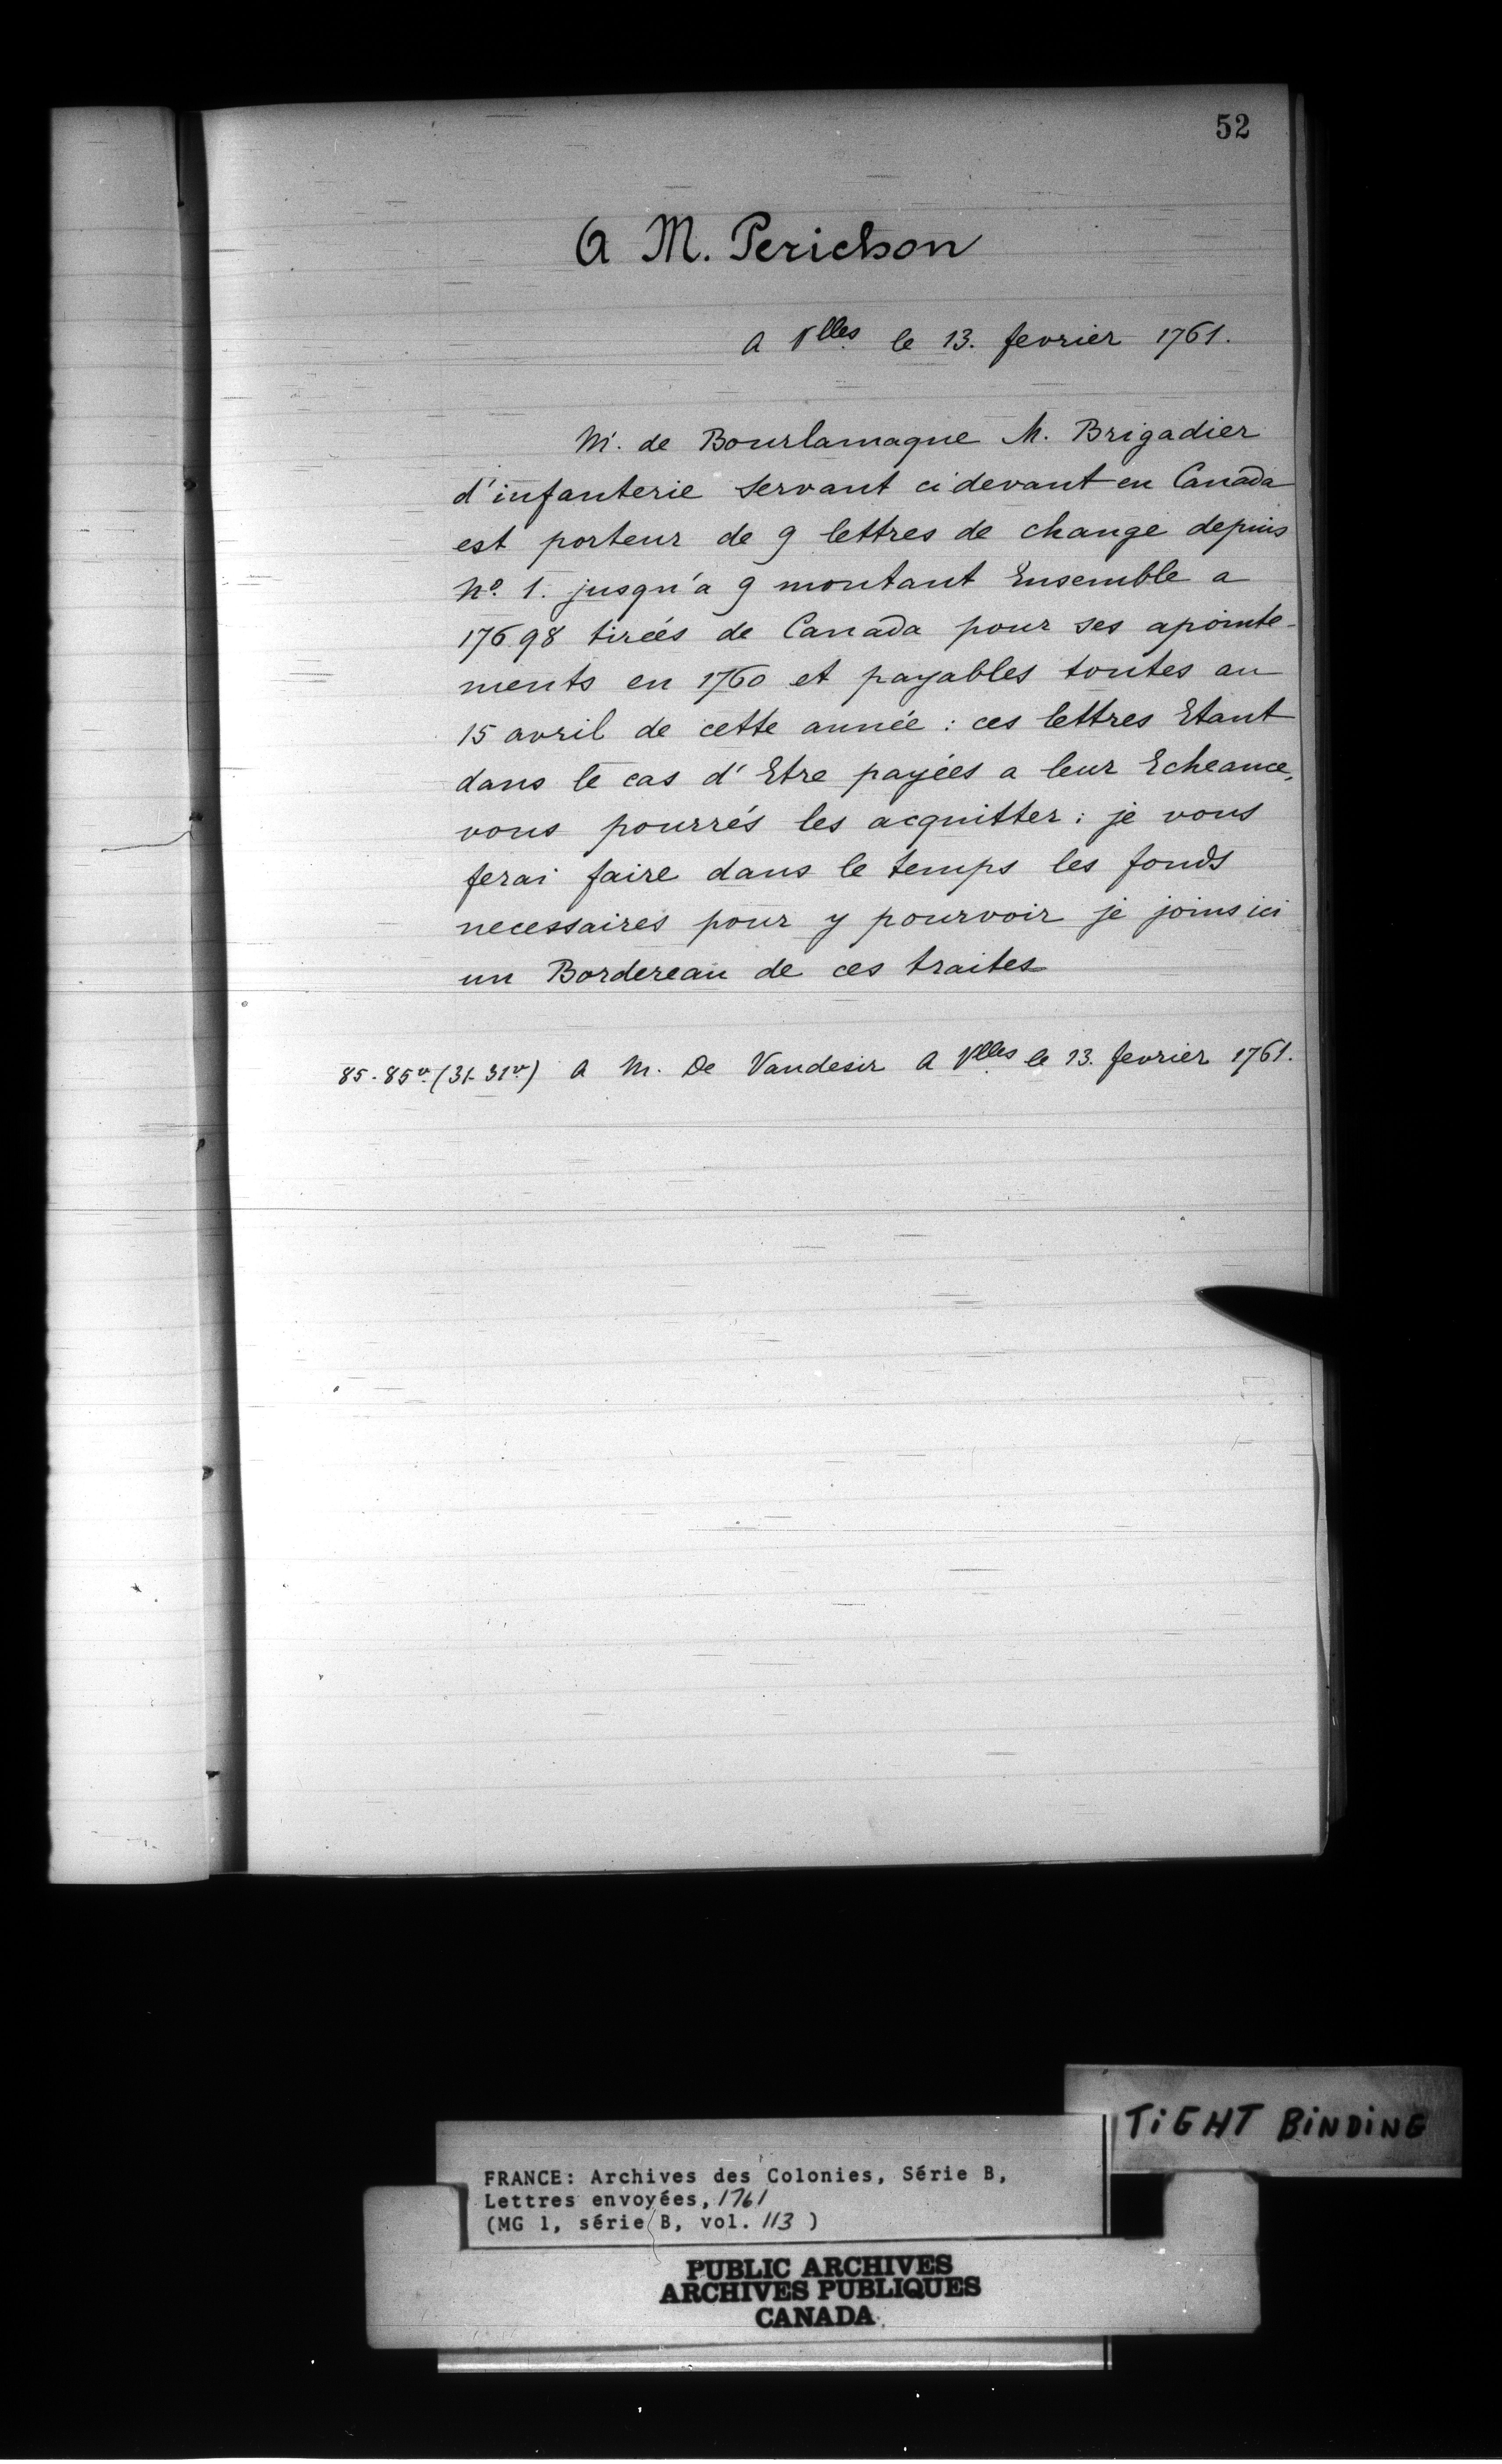 52
A M. Perichon
A Vlles le 13. fevrier 1761.
M. de Bourlamaque M. Brigadier
d'infanterie servant ci devant en Canada
est porteur de 9 lettres de change depuis
No. 1. jusqu'a 9 montant Ensemble a
17698 tirées de Canada pour ses apointe-
ments en 1760 et payables toutes au
15 avril de cette année : ces lettres Etant
dans le cas d'Etre payées a leur Echeance,
vous pourrés les acquitter : je vous
ferai faire dans le temps les fonds
necessaires pour y pourvoir je joins ici
un Bordereau de ces traites
85-85vo. (31-31vo) A M. De Vaudesir A Vlles le 13. fevrier 1761.
TiGHT BiNDiNG
FRANCE: Archives des Colonies, Série B,
Lettres envoyées, 1761
(MG 1, série B, vol. 113 )
PUBLIC ARCHIVES
ARCHIVES PUBLIQUES
CANADA